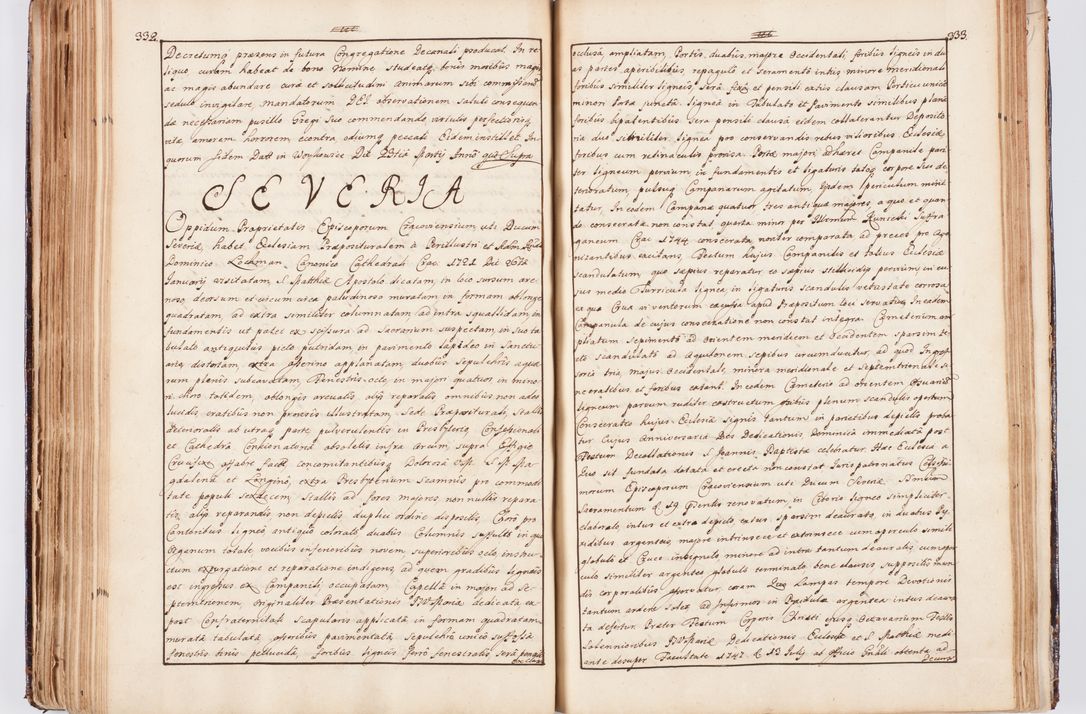 332.
Decretumq præsens in futura Congregatione Decanali producat. In re
liquo curam habeat de bono Nomine studeatq bonis moribus magis
ac magis abundare cura et sollicitudini animarum sibi commissarum
sedulo invigilare, mandatorum DEI observationem saluti consequen
dæ necessariam pusillo Gregi suo commendando, virtutis perfectionisq
vitæ amorem horrorem econtra, odiumq peccati Eidem instillet. In
quorum fidem Datt in Woykowice Die Martij Anno quo Supra
SEVERIA
Oppidum Proprietatis Episcoporum Cracoviensium uti Ducum
Severiæ, habet Ecclesiam Præposituralem à Perillustri et Adm Rndo
Dominico Lochman Canonico Cathedrali Crac. 1721 Die
Januarij visitatam, S. Matthiæ Apostolo dicatam, in loco sursum are
noso deorsum et circum circa paludinoso muratam in formam oblongo
quadratam, ad extra similiter columnatam ad intra squallidam, in
fundamentis ut patet ex scissura ad Sacrarium suspectam, in suo ta
bulato antiquitus picto putridam, in pavimento lapideo in Sanctu
ario distortam, extra asserino applanatam, duobus sepulchris aqua
rum plenis subcavatam, Fenestris octo, in majori quatuor in mino
ri choro totidem, oblongis arcualis alijs reparatis omnibus non adeo
lucidis, cratibus non provisis illustratam, Sede Præpositurali, Stallis
Ministrorum ab utraq parte pulverulentis in Presbyterio Confessionali
et Cathedra Concionatoria obsoletis infra arcum, supra Effigie
Crucifixi affabre facta concomitantibusq Dolorosa Visse S. Mag
dalena et Longino, extra Presbyterium Scamnis pro commodi
tate populi sexdecem, Stallis ad fores majores non nullis repara
tis, alijs reparandis non depictis, duplici ordine dispositis, Choro pro
Cantoribus ligneo antiquo colorato duabus Columnis suffulto in quo
Organum totale vocibus inferioribus novem, superioribus octo, instru
ctum expurgatione et reparatione indigens, ad quem gradibus ligneis
est ingressus ex Campanili, occupatam. Capella in majori ad Se
ptemtrionem, originaliter Præsentationis BV Mariæ dedicata ex
post Confraternitati Scapularis applicata in formam quadratam
murata tabulata asseribus pavimentata, sepulchro unico suffossa
fenestris binis pellucida, foribus ligneis ferro fenestratis sera pensili
occlusa

333.
occlusa ampliatam. Portis duabus, majore Occidentali foribus ligneis in du
as partes aperibilibus repagulo et seramento intus, minore meridionali
foribus similiter ligneis, sera fixa et pensili extus clausam Porticui unico
minori fora juncta. Lignea in Tabulato et Pavimento similibus plana
foribus bipatentibus sera pensili clausa eidem collaterantur Deposito
ria duo similiter lignea pro conservandis rebus vilioribus Ecclesiæ
foribus cum retinaculis provisa. Portæ majori adhæret Campanile pari
ter ligneum pervium in fundamentis et ligaturis totoq corpore suo de
terioratum, pulsuq Campanarum agitatum, Ejusdem periculum mini
tatur. In eodem Campanæ quatuor, tres antiquæ majores, a quo et quan
do consecratæ non constat, quarta minor per Illrmum Kunicki Suffra
ganeum Crac 1744 consecrata noviter comparata ad preces pro ago
nizantibus excitans. Tectum hujus Campanilis et totius Ecclesiæ
scandulatum quo sæpius reparatur eo sæpius stillicidijs pervium, in cu
jus medio Turricula lignea in ligaturis scandulis vetustate corrosa
ex qua Crux a ventorum excussa apud Præpositum loci servatur. In eadem
Campanula de cujus consecratione non constat integra. Cæmeterium am
pliatum sepimento ad orientem meridiem et Occidentem sparsim te
cto scandulato ad aquilonem sepibus circumducitur, ad quod Ingres
soria tria, majus Occidentale, minora meridionale et Septemtrionale si
ne cratibus et foribus extant. In eodem Cæmeterio ad orientem Ossuarium
ligneum parvum ruditer constructum ossibus plenum scandulis opertum
Consecratio hujus Ecclesiæ Signis tantum in parietibus depictis proba
tur Cujus Anniversaria Dies Dedicationis, Dominica immediata post
Festum Decollationis S. Joannis Baptistæ celebratur. Hæc Ecclesia a
Quo sit fundata dotata et erecta non constat. Juris patronatus Celsissi
morum Episcoporum Cracoviensium uti Ducum Severiæ. SSmum
Sacramentum & 19 Diebus renovatum, in Ciborio ligneo simpliciter
elaborato, intus et extra depicto extus sparsim deaurato, in duabus Py
xidibus argenteis, majore intrinsece et extrinsece cum operculo simili
globuli et Cruce insignito minore ad intra tantum deauratis, cum oper
culo similiter argenteo globuli terminato, bene clausis, suppositis mun
dis corporalibus asservatur, coram Quo Lampas tempore Devotionis
tantum ardere solet, ad Infirmos in Pixidula argentea intus deaura
ta defertur. Præter Festum Corporis Christi ejusq Octavarum Festis
Solennioribus BV Mariæ Dedicationis Ecclesiæ et S. Matthiæ medi
ante desuper Facultate 1747 & 13 Julij ab officio Gnali obtenta ad